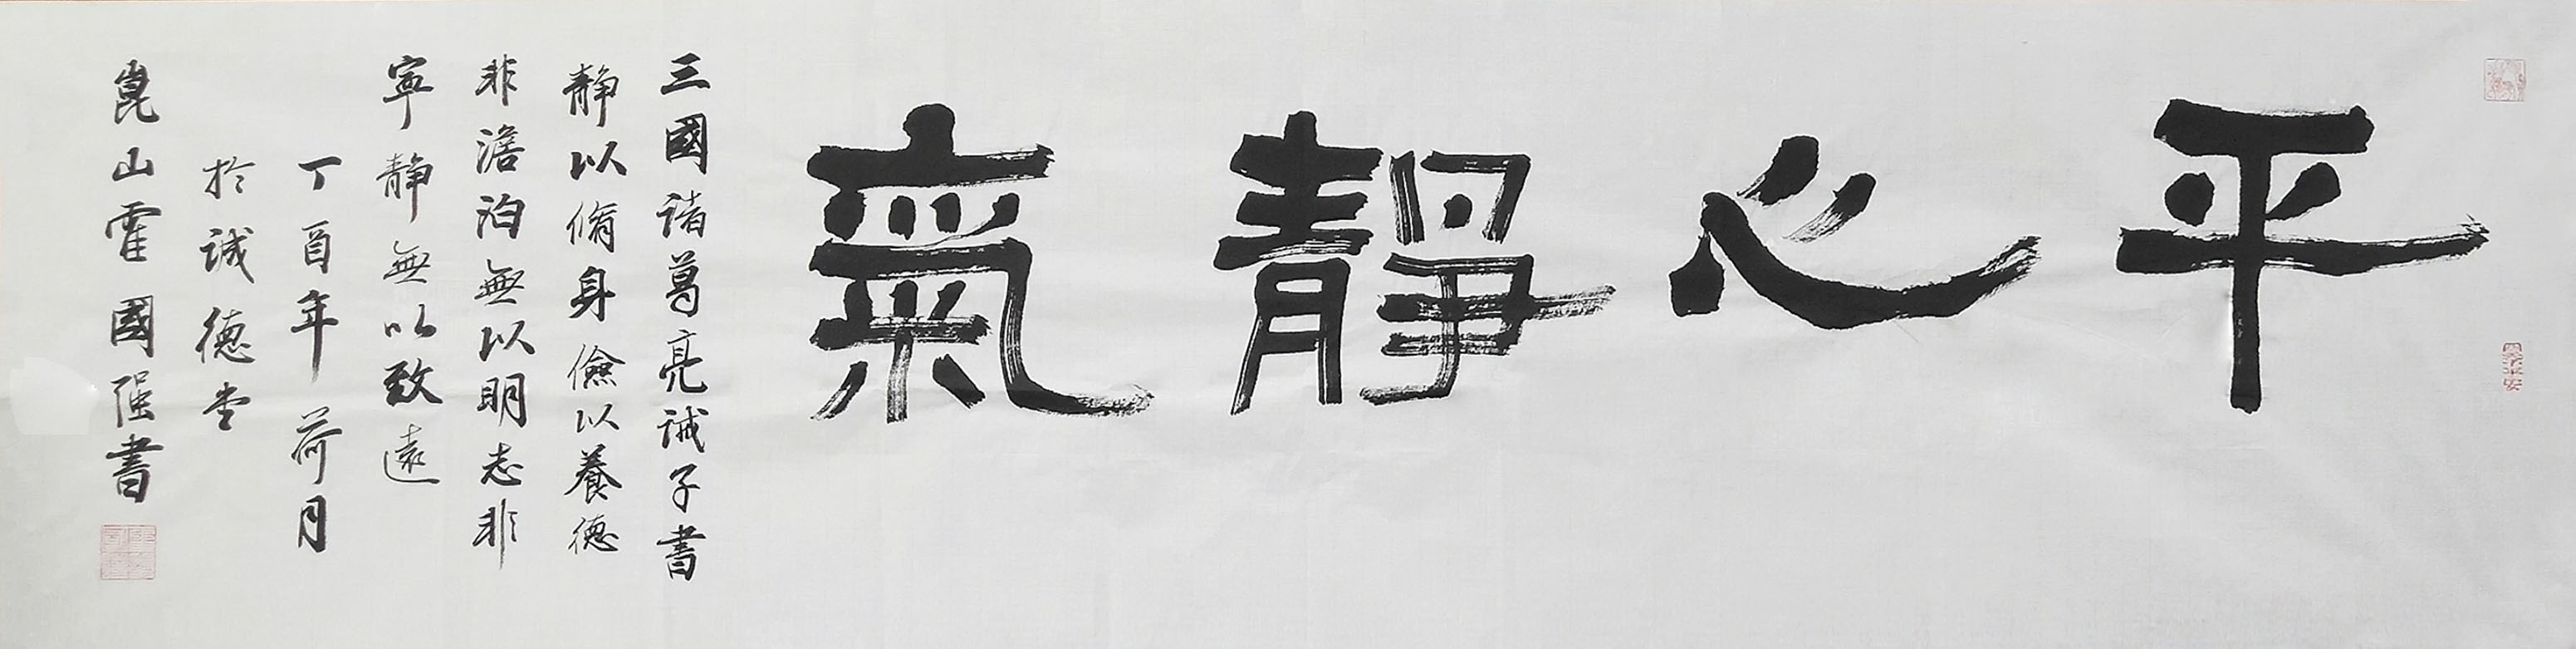 平心靜氣
三國諸葛亮誡子書
靜以脩身儉以養德
非澹泊無以明志非
寧靜無以致遠
丁酉年荷月
於誠德堂
崑山霍國强書